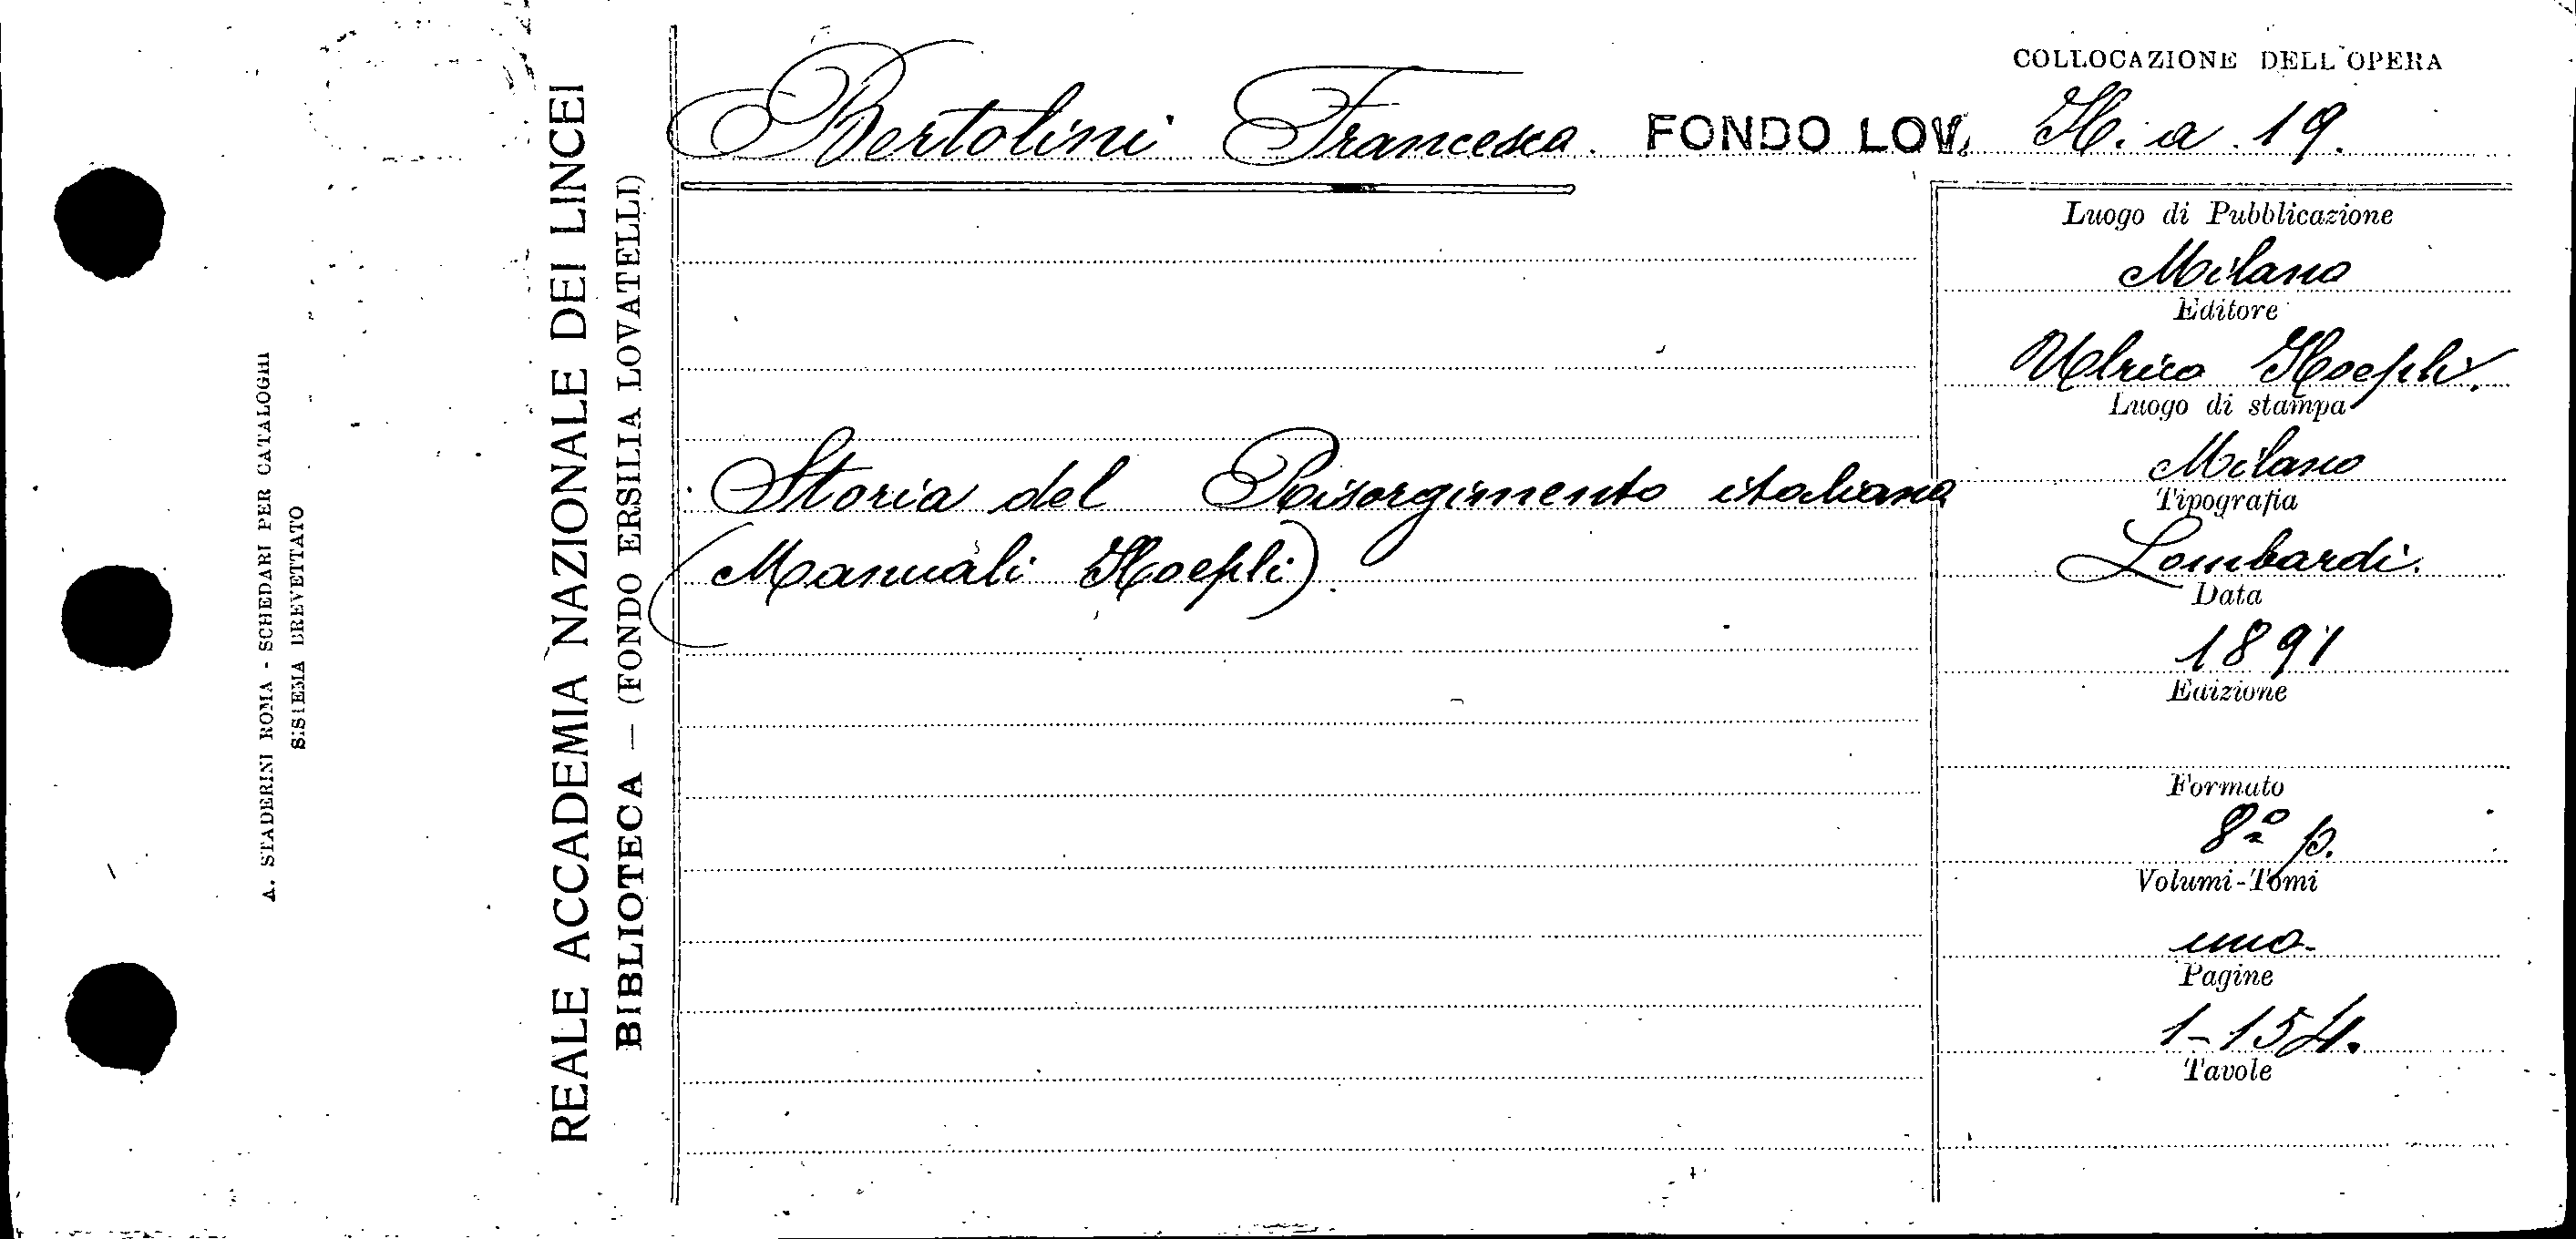 COLLOCAZIONE DELL'OPERA
Bertolini Francesco. FONDO LOV. H. a. 19.
Luogo di Pubblicazione
Milano
Editore
Ulrico Hoepli.
Luogo di stampa
Milano
Tipografia
Lombardi.
Data
1891
Edizione
Formato
8º p.
Volumi-Tomi
uno
Pagine
1-154.
Tavole
Storia del Risorgimento italiano
(Manuali Hoepli)
REALE ACCADEMIA NAZIONALE DEI LINCEI
BIBLIOTECA — (FONDO ERSILIA LOVATELLI)
A. STADERINI ROMA - SCHEDARI PER CATALOGHI
SISTEMA BREVETTATO